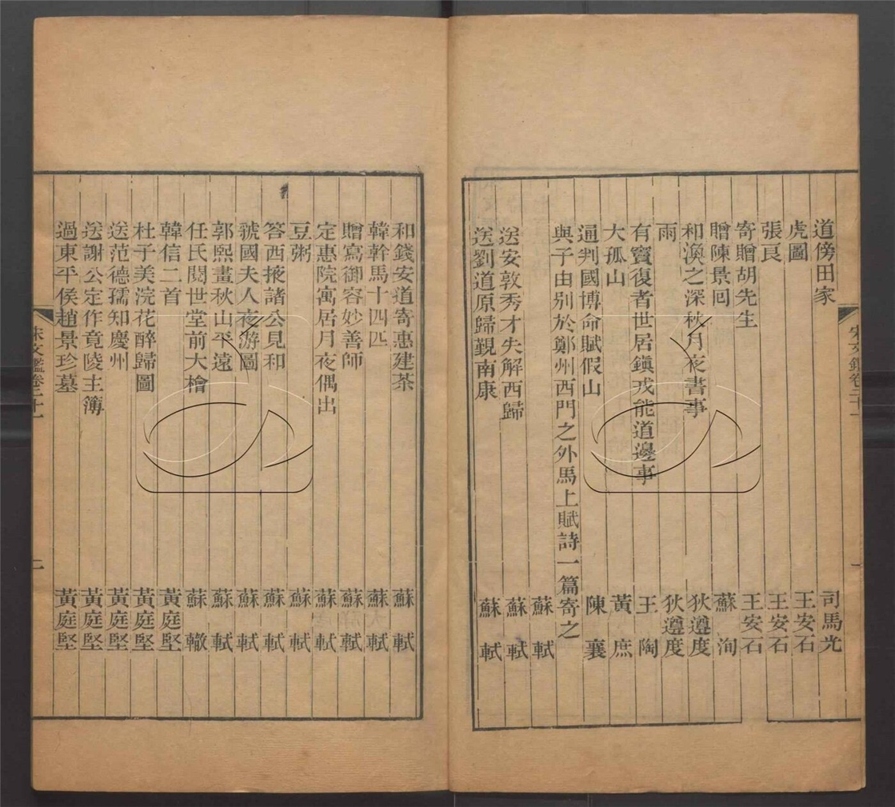 道傍田家 司馬光
虎圖 王安石
張良 王安石
寄贈胡先生 王安石
贈陳景回 蘇洵
和渙之深秋月夜書事 狄遵度
雨 狄遵度
有竇復者世居鎭戎能道邊事 王陶
大孤山 黃庶
通判國博命賦假山 陳襄
與子由别於鄭州西門之外馬上賦詩一篇寄之
蘇軾
送安敦秀才失解西歸 蘇軾
送劉道原歸覲南康 蘇軾
和錢安道寄惠建茶 蘇軾
韓幹馬十四匹 蘇軾
贈寫御容妙善師 蘇軾
定惠院寓居月夜偶出 蘇軾
豆粥 蘇軾
答西掖諸公見和 蘇軾
虢國夫人夜游圖 蘇軾
郭熙畫秋山平遠 蘇軾
任氏閱世堂前大檜 蘇轍
韓信二首 黃庭堅
杜子美浣花醉歸圖 黃庭堅
送范德孺知慶州 黃庭堅
送謝公定作竟陵主簿 黃庭堅
過東平侯趙景珍墓 黃庭堅
宋文鑑卷二十一 二